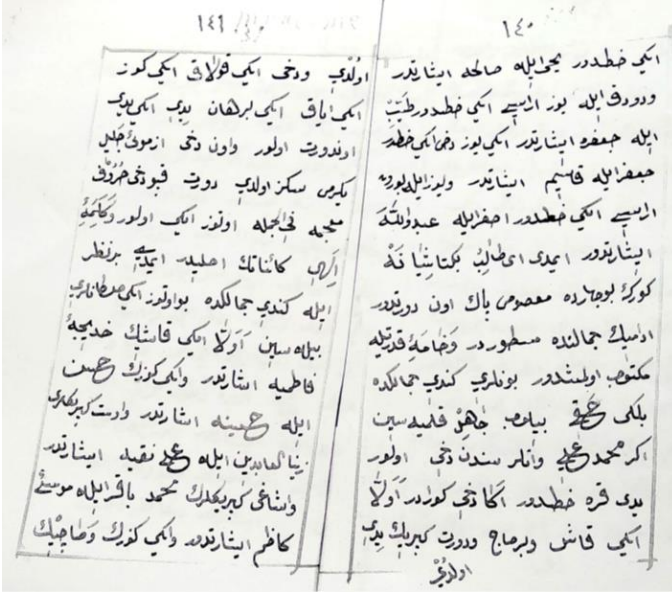 ١٤٠
ايكى خطدور يحيى ايله صالحه ايشارتدر
ودودق ايله يوز اراسے ايكى خطدور طيب
ايله جعفره ايشارتدر ايكى يوز دخى ايكى خطدر
جعفر ايله قاسيم ايشارتدر ويوز ايله بورن
اراسے ايكى خطدور اصغر ايله عبدوالله
ايشارتدور ايمدى اى طالب بكتاشيانه
كورك بوجهارده معصومى پاك اون دورتدور
ادميك جمالنده مسطور در وخامۀ قدرتيله
مكتوب اولمشدور بونلرى كندى جمالكده
بلكى عمق بيلوب جاهل قلميه سين
اكر محمد على وانلر سندن دخى اولور
يدى قره خطدور اكا دخى كورادر اولا
ايكى قاش وبر صاچ ودورت كيريك يدى
اولدى
١٤١
اولدى ودخى ايكى قولاق ايكى كوز
ايكى اياق ايكى برهان يدى ايكى يدى
اوندورت اولور واون دخى ازموئ جليل
يكرمى سكز اولدى دورت قپو دخى حروف
معجمه فى الجمله اوتوز ايكى اولور وكليمۀ
الهى كائناتك اصليدر ايمدى بر نظر
ايله كندى جمالكده بو اوتوز ايكى سلطانلرى
بيله سين اولا ايكى قاشيك خديجۀ
فاطميه ايشارتدر وايكى كوزك حسن
ايله حسينه ايشارتدر واوست كيريكلرى
زينالعابدين ايله على نقيه ايشارتدر
واشاغى كيريكلرك محمد باقر ايله موسئ
كاظم ايشارتدور وايكى كوزك وصاچيك